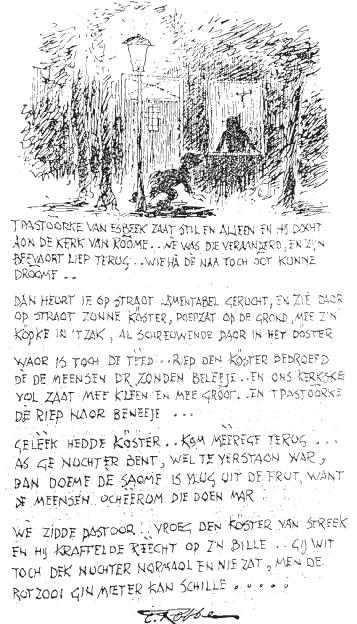 TPASTOORKE VAN ESBEEK ZAAT STIL EN ALLEEN EN HIJ DOCHT
AON DE KERK VAN ROOME.. WE WAS DIE VERAANDERD, EN ZIJN
BEEVAORT LIEP TERUG.. WIE HÀ DÈ NAA TOCH OOT KUNNE
DROOME..
DAN HEURT IE OP STRAOT LAMENTABEL GERUCHT, EN ZIÉ DAOR
OP STRAOT ZUNNE KÖSTER, POEPZAT OP DE GROND, MEE Z'N
KÖPKE IN 'T ZAK, AL SCHREUWENDE DAOR IN HET DÖSTER
WAOR IS TOCH DE TÈED.. RIEP DEN KÖSTER BEDROEFD
DÈ DE MEENSEN DR ZONDEN BELEEJE.. EN ONS KERKSKE
VOL ZAAT MEE KLEEN EN MEE GRÖOT.. EN TPASTOORKE
DE RIEP NAOR BENEEJE...
GELEEK HEDDE KÖSTER.. KOM MÈEREGE TERUG...
AS GE NUCHTER BENT, WEL TE VERSTAON WAR,
DAN DOEME DE SAOME IS VLUG UIT DE FRUT, WANT
DE MEENSEN.. OCHEERUM DIE DOEN MAR
WÈ ZIDDE PASTOOR.. VROEG DEN KÖSTER VAN STREEK
EN HIJ KRAFFELDE RÈECHT OP Z'N BILLE.. GIJ WIT
TOCH DEK NUCHTER NORMAOL EN NIE ZAT, MEN DE
ROTZOOI GIN MIETER KAN SCHILLE.....
C. Robbe